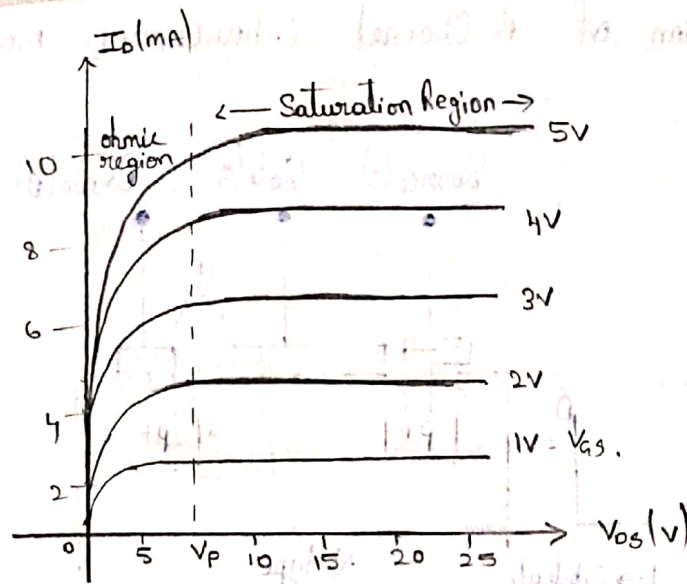 I_D (mA)
← Saturation Region →
ohmic
region
5V
10
4V
8
3V
6
2V
4
1V - V_GS.
2
0 5 V_P 10 15. 20 25
V_DS (V)